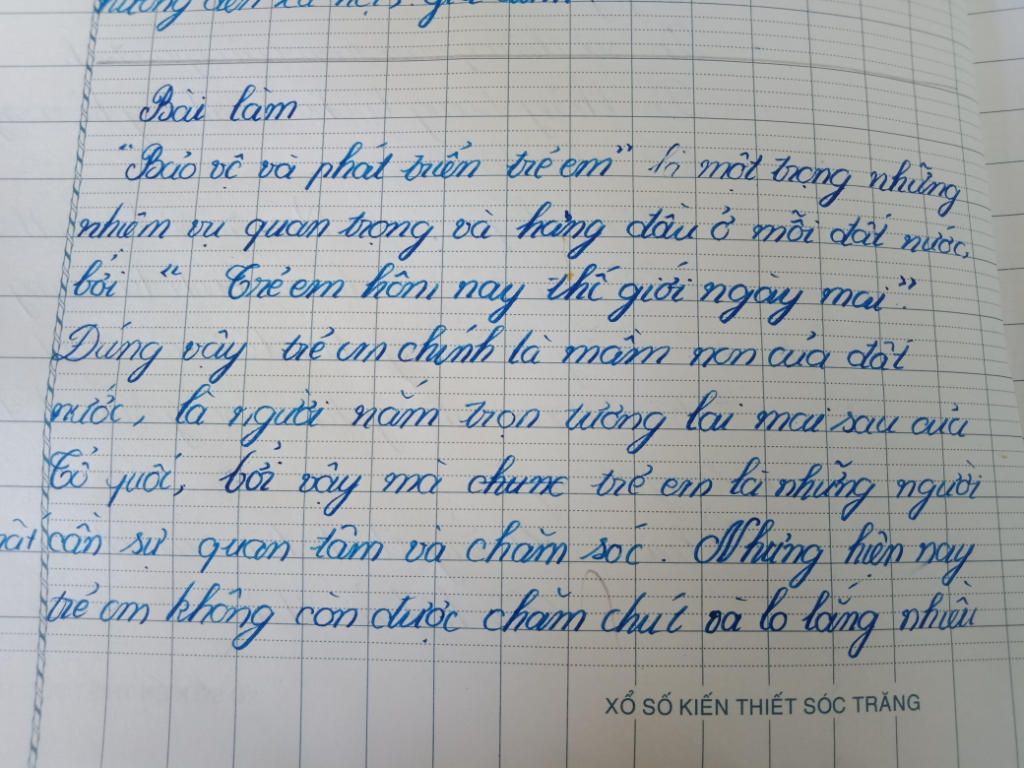 Bài làm
"Bảo vệ và phát triển trẻ em" là một trọng những
nhiệm vụ quan trọng và hàng đầu ở mỗi đất nước,
bởi " Trẻ em hôm nay thế giới ngày mai".
Đúng vậy trẻ em chính là mầm non của đất
nước, là người nắm trọn tương lai mai sau của
Tổ quốc, bởi vậy mà trẻ em là những người
cần sự quan tâm và chăm sóc. Nhưng hiện nay
trẻ em không còn được chăm chút và lo lắng nhiều
XỔ SỐ KIẾN THIẾT SÓC TRĂNG